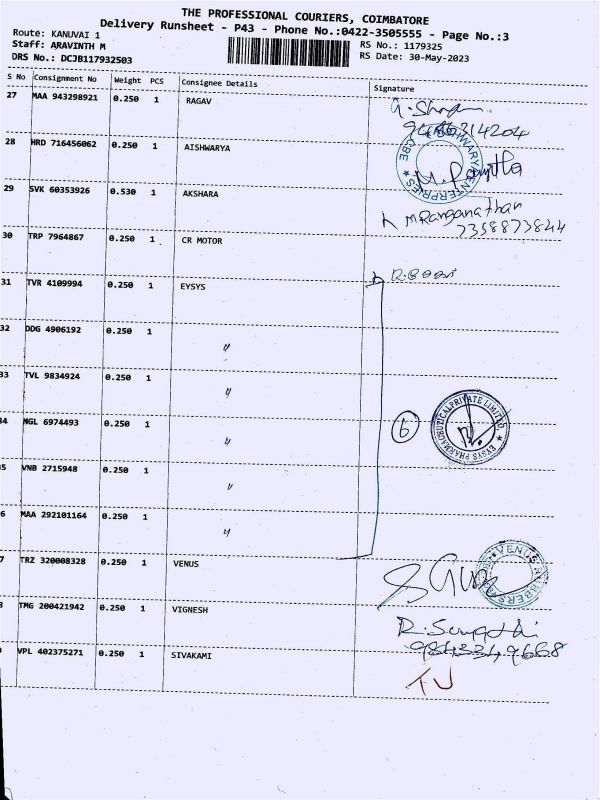 THE PROFESSIONAL COURIERS, COIMBATORE
Delivery Runsheet - P43 - Phone No.:0422-3505555 - Page No.:3
Route: KANUVAI 1
Staff: ARAVINTH M
DRS No.: DCJB117932503
RS No.: 1179325
RS Date: 30-May-2023
S No Consignment No Weight PCS Consignee Details Signature
27 MAA 943298921 0.250 1 RAGAV
28 HRD 716456062 0.250 1 AISHWARYA
29 SVK 60353926 0.530 1 AKSHARA
M Ranganathan
7358873844
30 TRP 7964867 0.250 1 CR MOTOR
31 TVR 4109994 0.250 1 EYSYS
32 DDG 4906192 0.250 1 "
33 TVL 9834924 0.250 1 "
34 MGL 6974493 0.250 1 "
6
EYSYS PHARMACEUTICAL PRIVATE LIMITED
35 VNB 2715948 0.250 1 "
6 MAA 292101164 0.250 1 "
7 TRZ 320008328 0.250 1 VENUS
VENUS RUBBERS
8 TMG 200421942 0.250 1 VIGNESH
9 VPL 402375271 0.250 1 SIVAKAMI
TJ